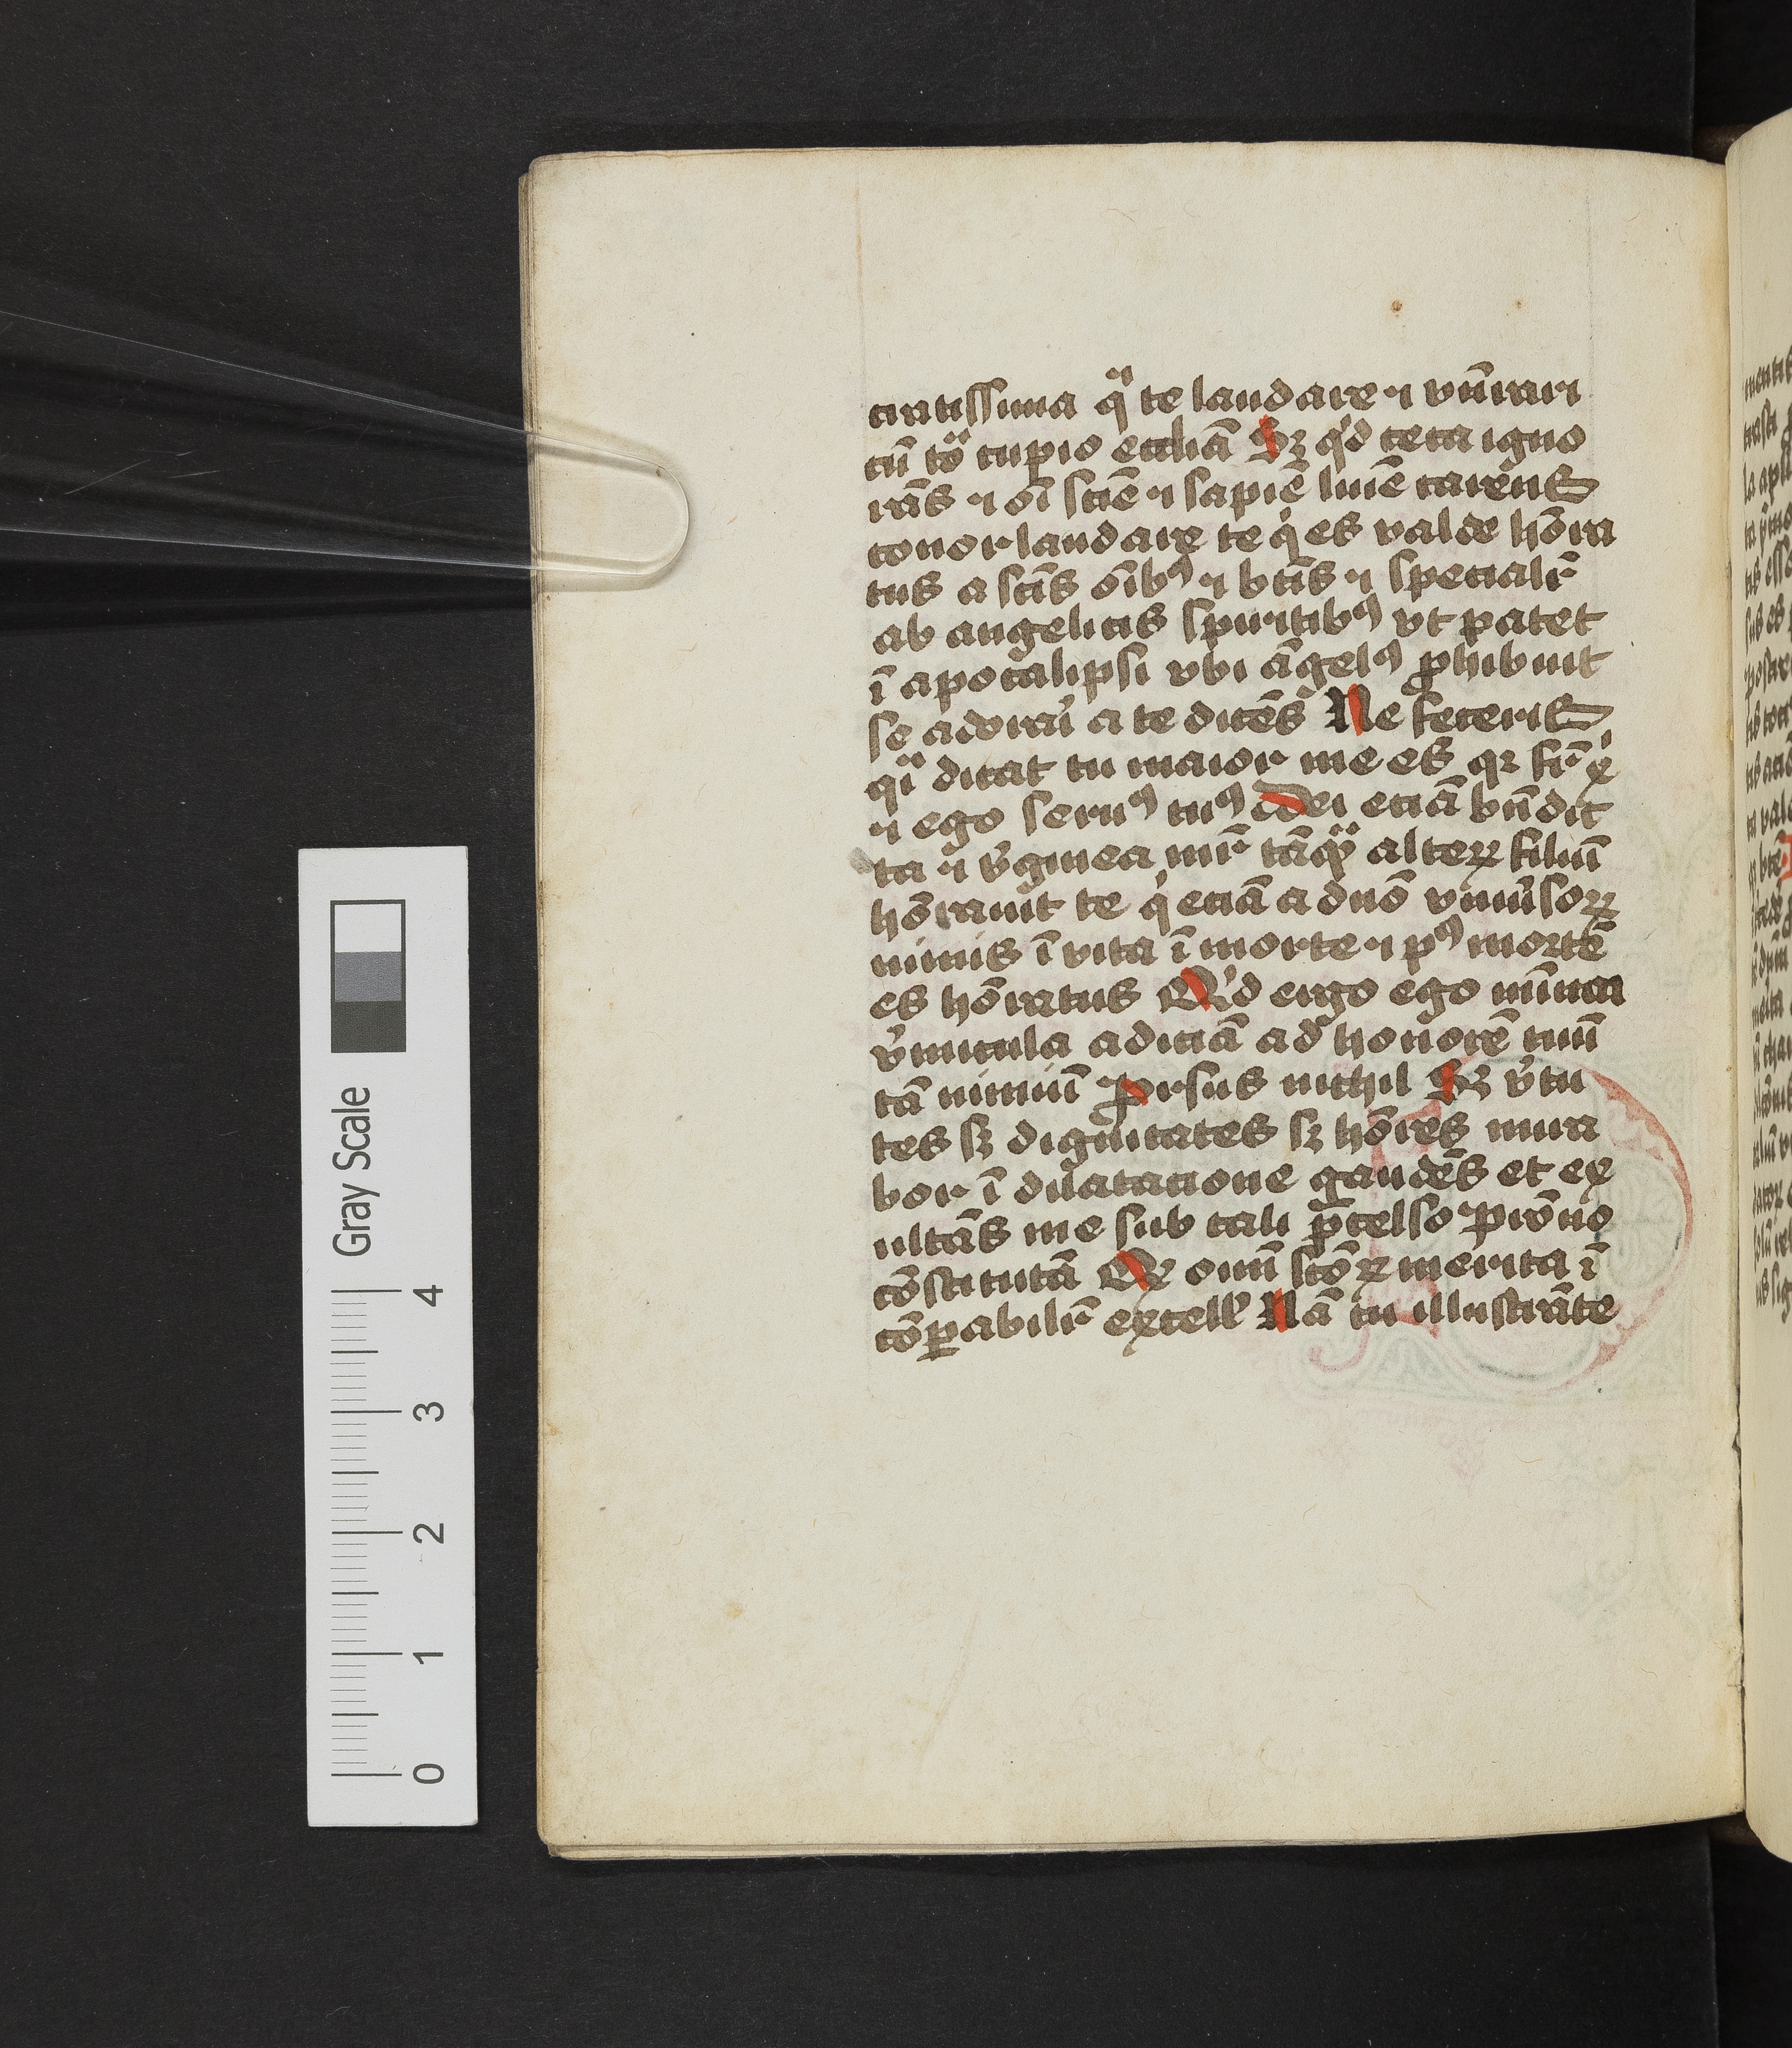 ciatissima qͣ te laudare ⁊ vn̄erari
cū to͞ cupio eccliā Sꝫ qͥd ceca igno
rās ⁊ oī scīe ⁊ sapiē lumē carens
conor laudare te qͥ es valde hōra
tus a scīs oībꝰ ⁊ btīs ⁊ specialr̄
ab angelicis spiritibꝰ vt patet
ī apocalipsi vbi āgelꝰ ꝓhibuit
se adorari a te dicēs Ne feceris
qͣi dicat tu maior me es qꝛ fr̄ xͥ
⁊ ego seruꝰ tuꝰ Dei eciā bn̄dic
ta ⁊ v͛ginea mr̄ tāqͣꝫ alteꝝ filiū
hōrauit te qͥ eciā a dn̄o vniu͛soꝝ
nimis ī vita ī morte ⁊ pꝰ mortē
es hōratus Qͥd ergo ego mīma
v͛micula adiciā ad honorē tuū
tā nimiū ꝓrsus nichil Sꝫ v͛tu
tes sꝫ dignitates sꝫ hōres mira
bor ī dilatacione gaudēs et ex
ultās me sub tali p̄celso p̄rōno
cōstitutā Qͥ omīū scōꝝ merita ī
cōꝑabilr̄ excell' Nā tu illustrāte
Gray Scale
4
3
2
1
0